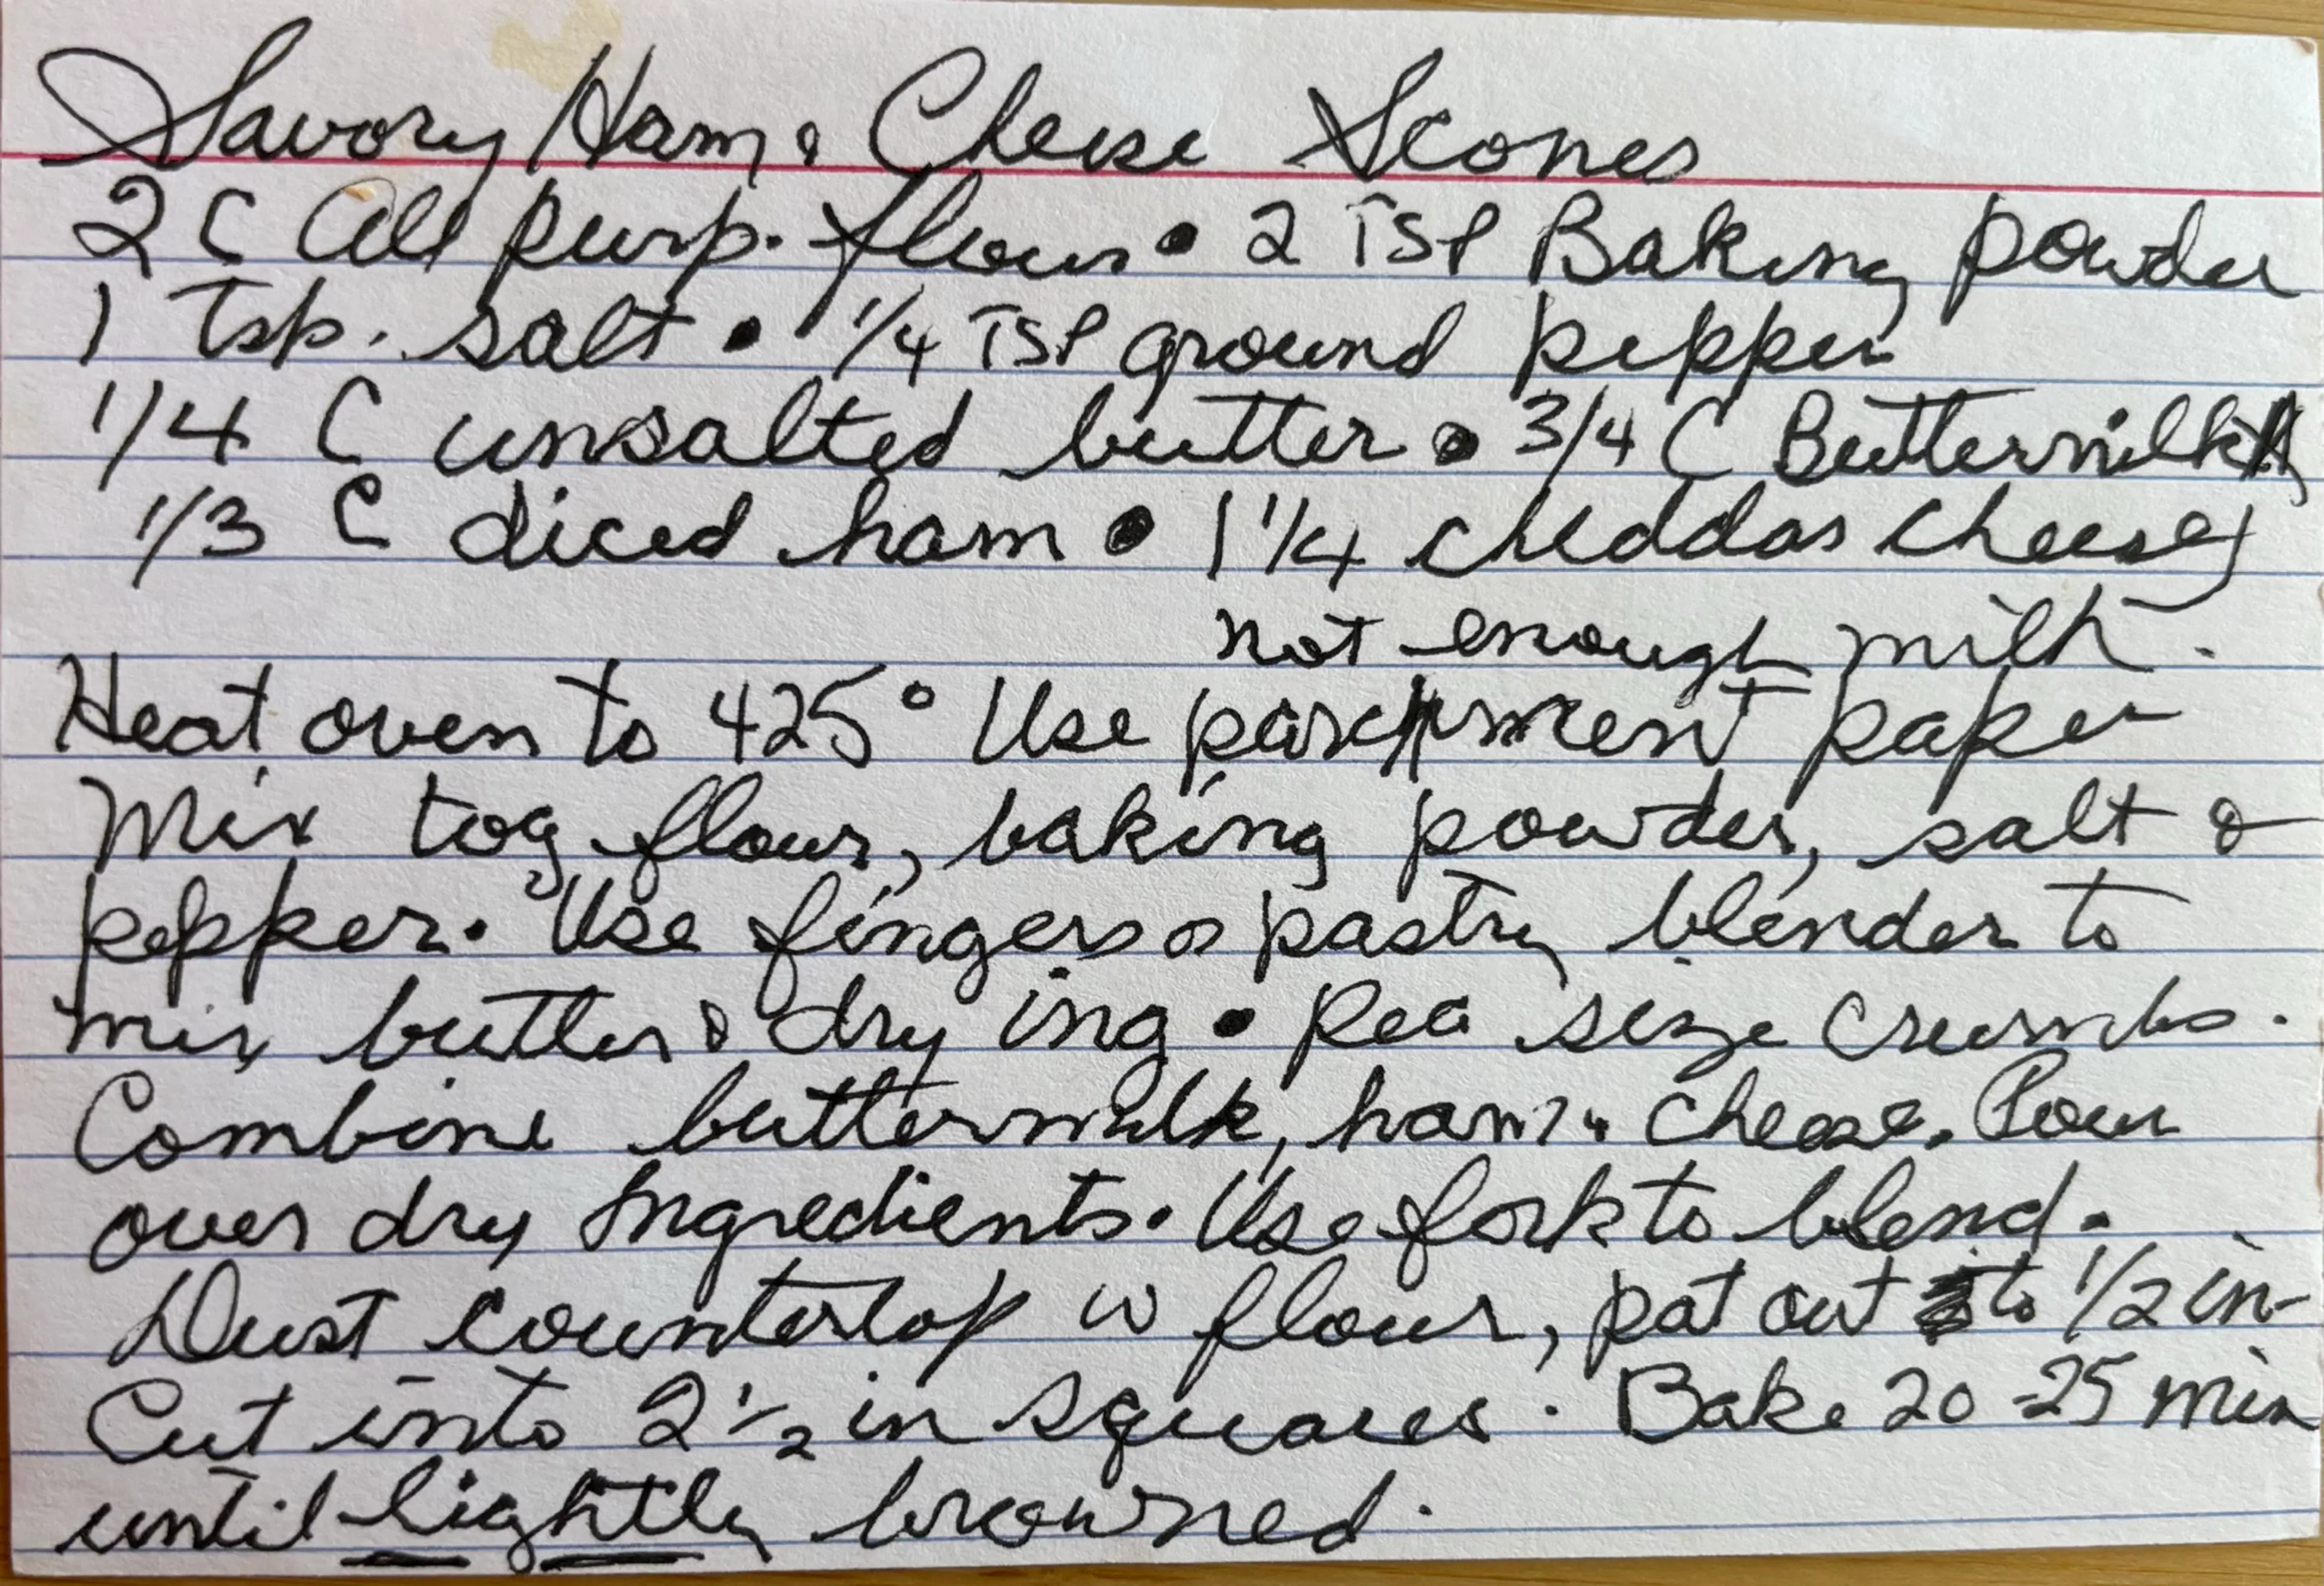 Savory Ham & Cheese Scones
2 C All purp. flour • 2 TSP Baking powder
1 Tsp. salt • 1/4 TSP ground pepper
1/4 C unsalted butter • 3/4 C Buttermilk
1/3 C diced ham • 1 1/4 cheddar cheese
not enough milk.
Heat oven to 425° Use parchment paper
Mix tog flour, baking powder, salt &
pepper. Use fingers or pastry blender to
mix butter & dry ing • Pea size crumbs.
Combine buttermilk, ham & cheese. Pour
over dry Ingredients. Use fork to blend.
Dust countertop w flour, pat out to 1/2 in-
Cut into 2 1/2 in squares. Bake 20-25 min
until lightly browned.